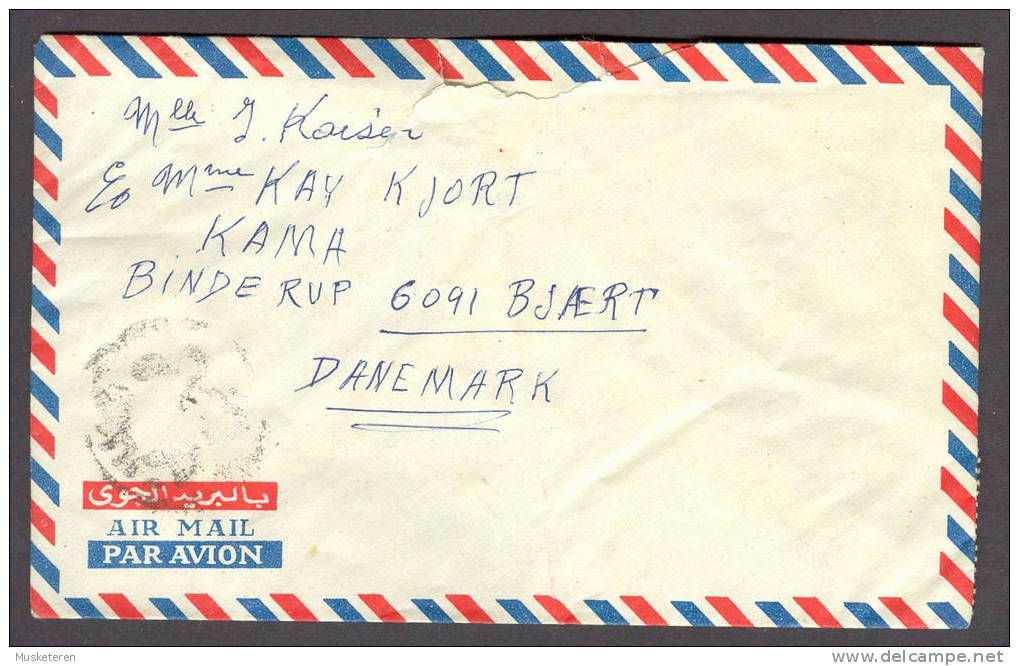 Mlle J. Kaiser
C/o Mme KAY KJORT
KAMA
BINDERUP 6091 BJÆRT
DANEMARK
بالبريد الجوى
AIR MAIL
PAR AVION
Musketeren
delcampe.net